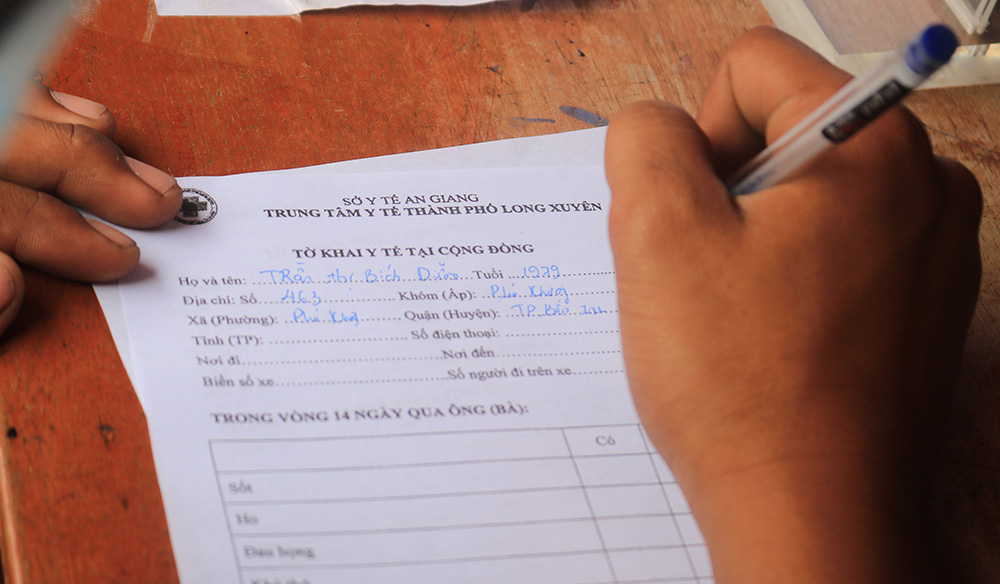 SỞ Y TẾ AN GIANG
TRUNG TÂM Y TẾ THÀNH PHỐ LONG XUYÊN
TỜ KHAI Y TẾ TẠI CỘNG ĐỒNG
Họ và tên: Trần thị Bích Diễm Tuổi 1979
Địa chỉ: Số 463 Khóm (Ấp): Phú
Xã (Phường): Phú Quận (Huyện): TP
Tỉnh (TP): Số điện thoại:
Nơi đi Nơi đến
Biển số xe Số người đi trên xe
TRONG VÒNG 14 NGÀY QUA ÔNG (BÀ):
Có
Sốt
Ho
Đau họng
Khó thở